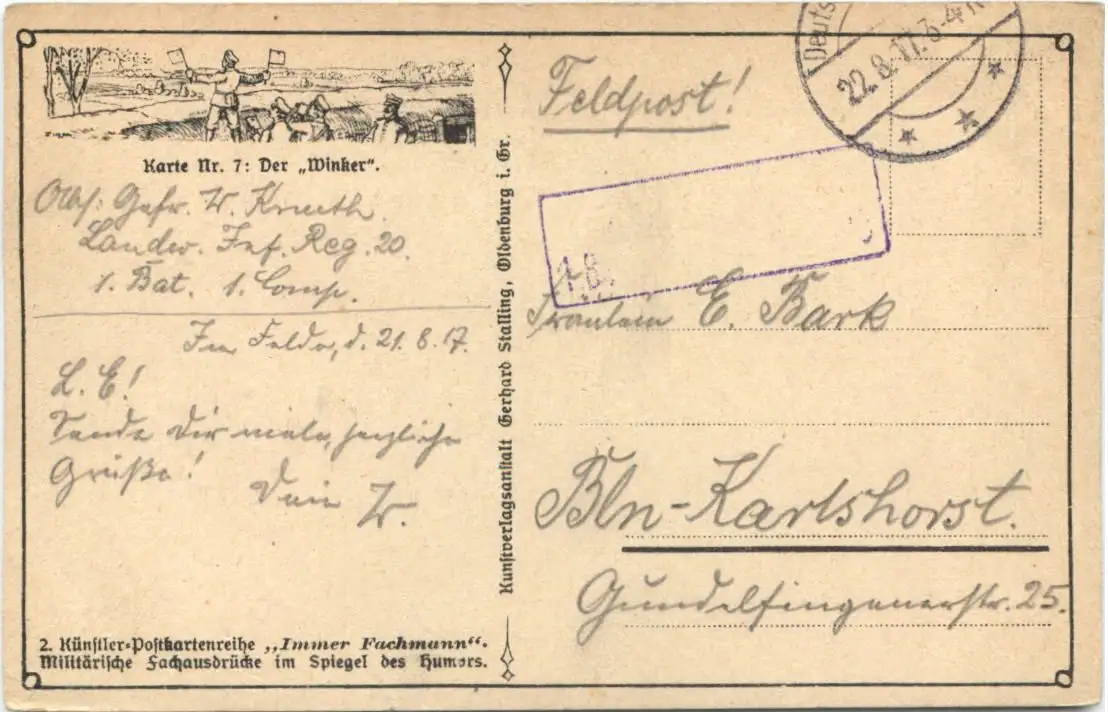 Karte Nr. 7: Der „Winker“.
Abs: Gefr. W. Krueth.
Landw. Inf. Reg. 20.
1. Bat. 1. Comp.
Im Felde, d. 21.8.17.
L. E!
Sende Dir viele, herzliche
Grüße!
Dein W.
2. Künstler-Postkartenreihe „Immer Fachmann“.
Militärische Fachausdrücke im Spiegel des Humors.
Kunstverlagsanstalt Gerhard Stalling, Oldenburg i. Gr.
Deuts
22.8.17.3-4N
Feldpost!
1.B.
Fräulein E. Bark
Bln-Karlshorst.
Gundelfingenerstr. 25.